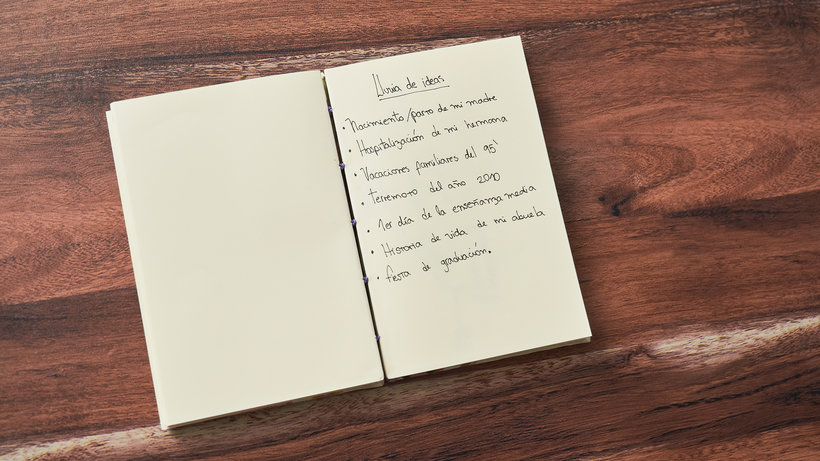 Lluvia de ideas
• Nacimiento/parto de mi madre
• Hospitalización de mi hermana
• Vacaciones familiares del 95'
• terremoto del año 2010
• 1er día de la enseñanza media
• Historia de vida de mi abuela
• fiesta de graduación.